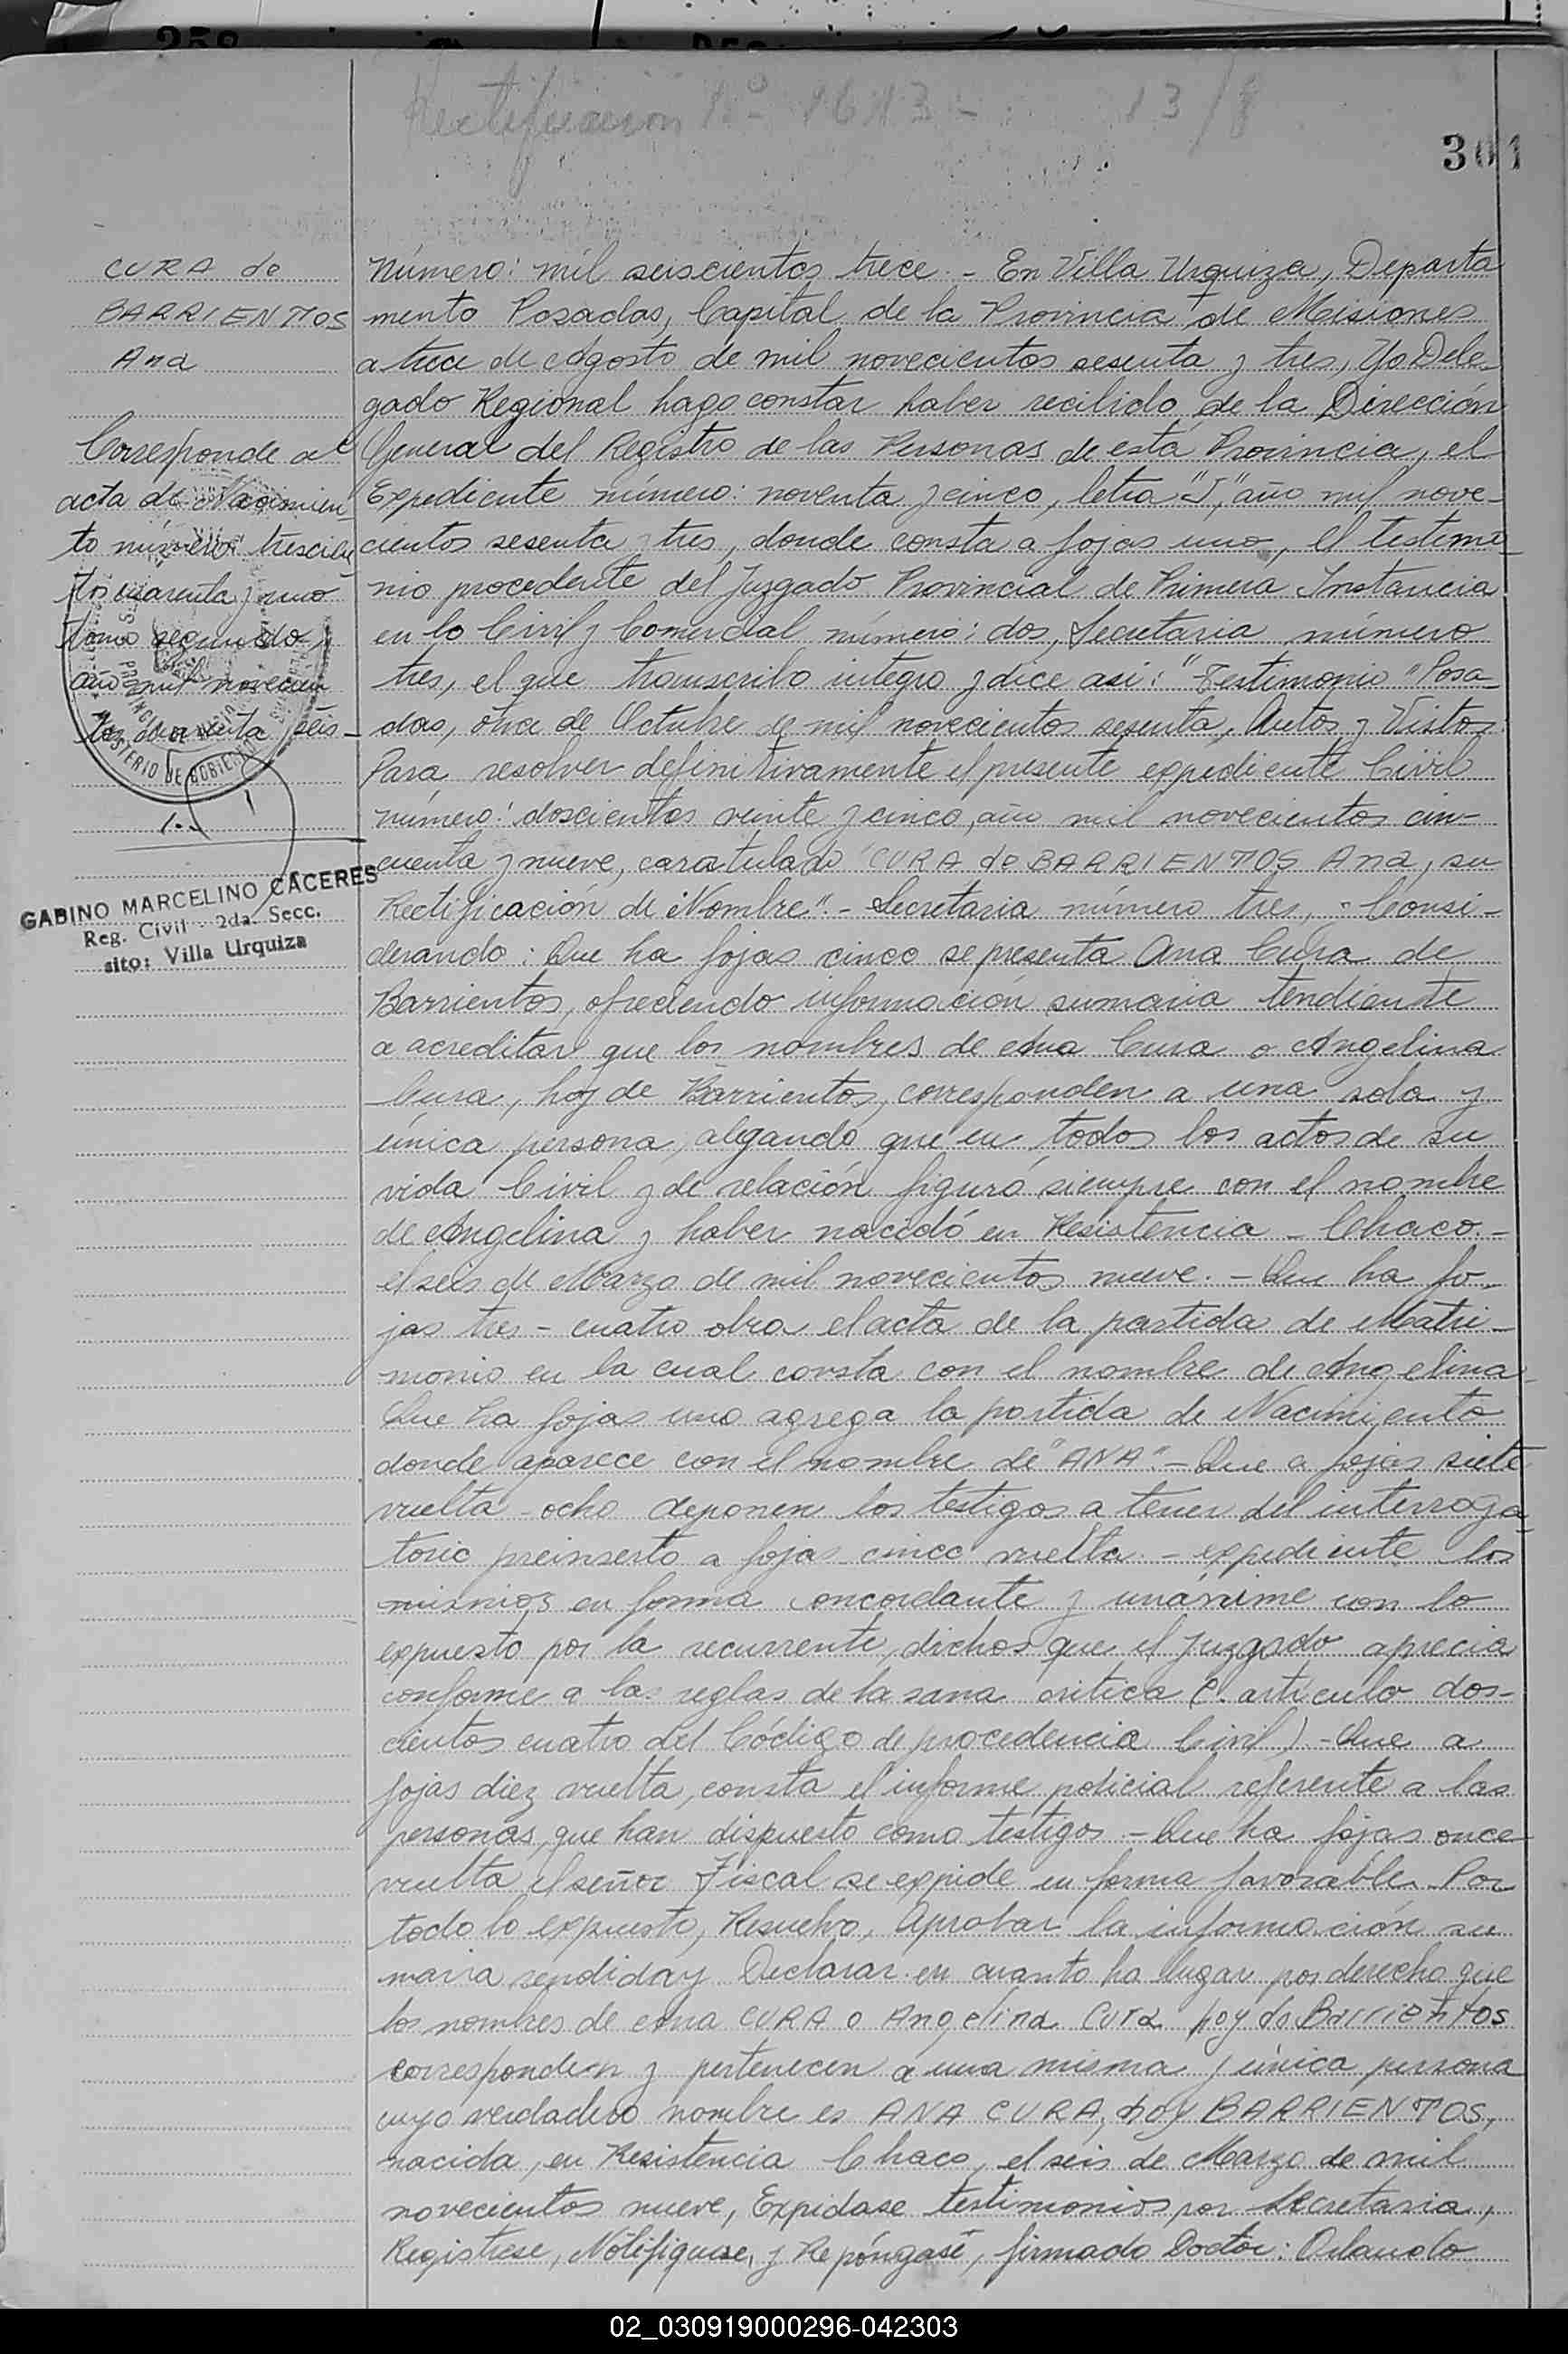 Rectificación Nº 1613 - 13/8
301
CURA de
BARRIENTOS
Ana
Corresponde al
acta de Nacimien
to número trescien
tos cuarenta y uno
tomo segundo
año mil novecien
tos cuarenta seis
MINISTERIO DE GOBIERNO
GABINO MARCELINO CACERES
Reg. Civil - 2da. Secc.
sito: Villa Urquiza
Número: mil seiscientos trece.- En Villa Urquiza, Departa
mento Posadas, Capital de la Provincia de Misiones
a trece de Agosto de mil novecientos sesenta y tres, Yo Dele-
gado Regional hago constar haber recibido de la Dirección
General del Registro de las Personas de esta Provincia, el
Expediente número: noventa y cinco, letra "J", año mil nove-
cientos sesenta y tres, donde consta a fojas uno, el testimo
nio procedente del Juzgado Provincial de Primera Instancia
en lo Civil y Comercial número: dos, Secretaria número
tres, el que transcribo integro y dice asi: "Testimonio "Posa-
das, once de Octubre de mil novecientos sesenta, Autos y Vistos
Para resolver definitivamente el presente expediente Civil
número: doscientos veinte y cinco, año mil novecientos cin-
cuenta y nueve, caratulado "CURA de BARRIENTOS Ana, su
Rectificación de Nombre".- Secretaria número tres, - Consi-
derando: Que ha fojas cinco se presenta Ana Cura de
Barrientos, ofreciendo información sumaria tendiente
a acreditar que los nombres de Ana Cura o Angelina
Cura, hoy de Barrientos, corresponden a una sola y
única persona, alegando que en todos los actos de su
vida Civil y de relación figuró siempre con el nombre
de Angelina y haber nacedó en Resistencia - Chaco.-
el seis de Marzo de mil novecientos nueve.- Que ha fo-
jas tres - cuatro obra el acta de la partida de Matri-
monio en la cual consta con el nombre de Angelina-
Que ha fojas uno agrega la partida de Nacimiento
donde aparece con el nombre de "ANA".- Que a fojas siete
vuelta - ocho deponen los testigos a tener del interroga
torio preinserto a fojas cinco vuelta.- expediente los
mismos en forma concordante y unánime con lo
expuesto por la recurrente, dichos que el Juzgado aprecia
conforme a las reglas de la sana critica (C. artículo dos-
cientos cuatro del Código de procedencia Civil) - Que a
fojas diez vuelta, consta el informe policial referente a las
personas, que han dispuesto como testigos.- Que ha fojas once
vuelta el señor Fiscal se expide en forma favorable. Por
todo lo expuesto, Resuelvo, Aprobar la información su
maria rendida y Declarar en cuanto ha lugar por derecho que
los nombres de Ana CURA o Angelina Cura hoy de Barrientos
corresponden y pertenecen a una misma y única persona
cuyo verdadero nombre es ANA CURA, hoy BARRIENTOS,
nacida, en Resistencia Chaco, el seis de Marzo de mil
novecientos nueve, Expidase testimonios por Secretaria,
Registrese, Nótifiquese, y Repóngase, firmado Doctor: Orlando
02_030919000296-042303